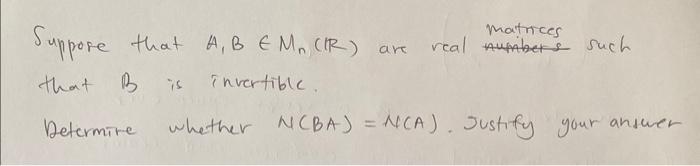 Suppose that A, B ∈ Mn (R) are real numbers matrices such
that B is invertible.
Determine whether N(BA) = N(A). Justify your answer